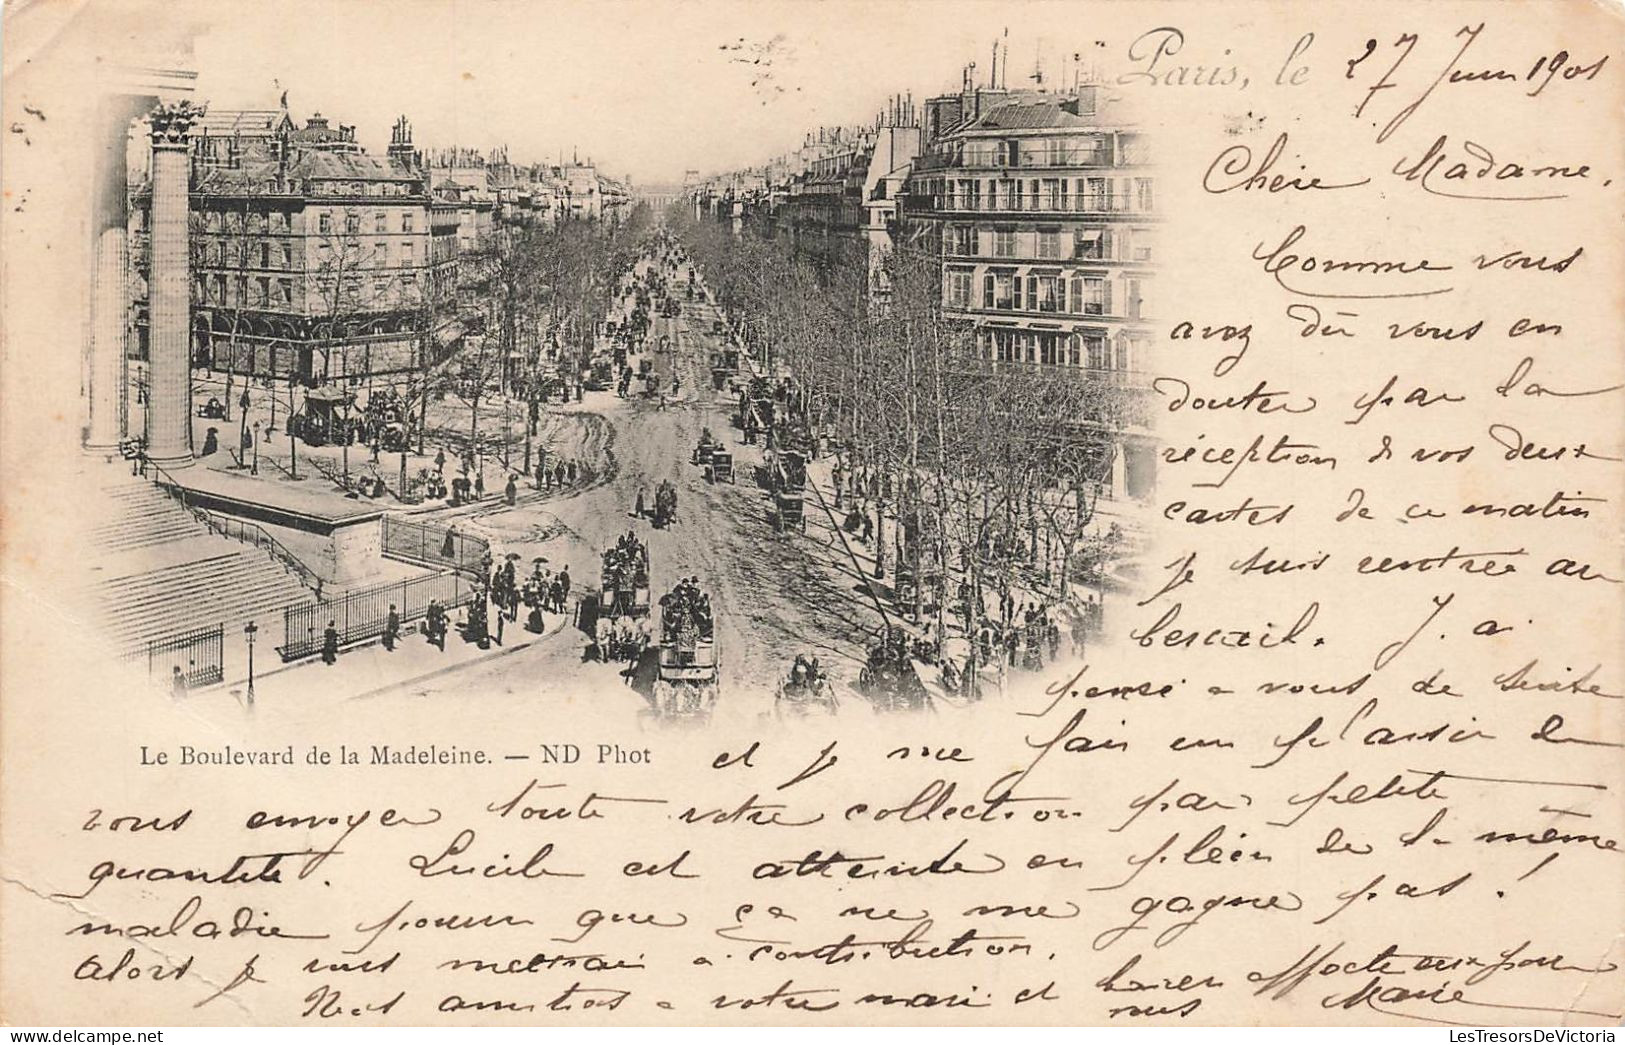 Paris, le 27 Juin 1901
Chère Madame,
Comme vous
avez dû vous en
douter par la
réception de vos deux
cartes de ce matin
je suis rentrée au
bercail. J'ai
pensé a vous de suite
Le Boulevard de la Madeleine. — ND Phot
et je me fais un plaisir de
vous envoyer toute votre collection par petite
quantité. Lucile est atteinte en plein de la même
maladie pourvu que ça ne me gagne pas !
alors je vous mettrai a contribution.
Nos amitiés a votre mari et baisers affectueux pour
vous Marie
LesTresorsDeVictoria